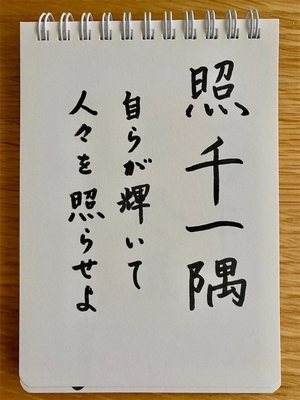 照千一隅
自らが輝いて
人々を照らせよ